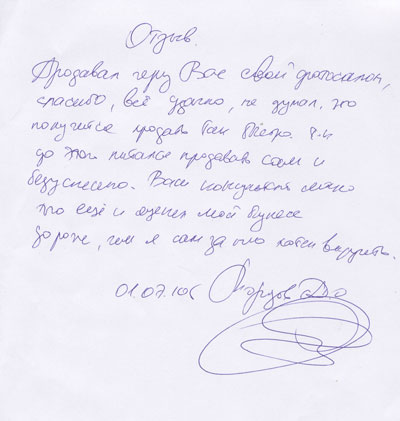 Отзыв.
Продавал через Вас свой фотосалон,
спасибо, всё удачно, не думал, что
получится продать так быстро. т.к
до этого пытался продавать сам и
безуспешно. Ваш консультант мало
что ещё и оценил мой бизнес
дороже, чем я сам за него хотел выручить.
01.07.10г